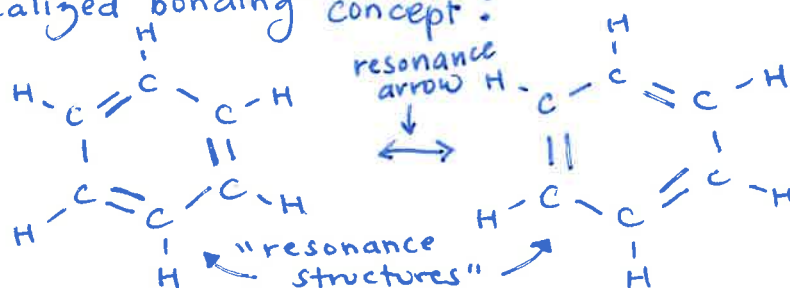 alized bonding concept :
resonance
arrow
H
H
H
C
C
H
H
C
C
C
C
H
C
C
C
C
H
H
C
H
C
C
H
C
H
H
H
"resonance
structures"